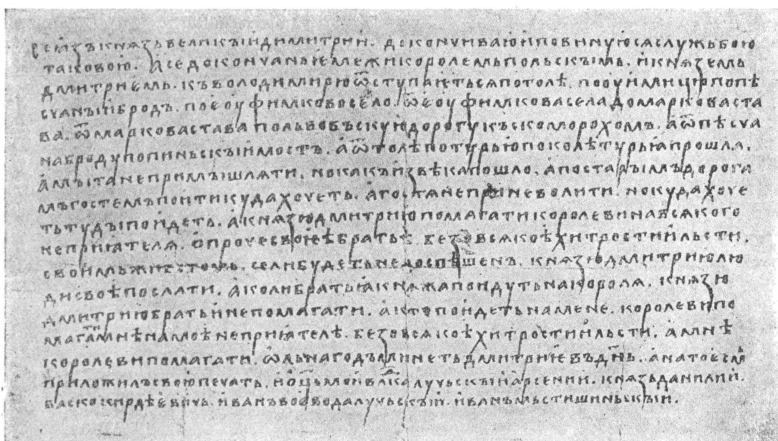 се ꙗзъ кнѧзь великъıи димитрии. докончиваю и повинуюсѧ служьбою
таковою. а се докончаньѥ межи королемь польскъıмь. и кнѧземь
дмитриемь. къ володимирю ѿступаѥтьсѧ потолѣ. по по пѣ
счанъıи бродъ. по еоуфимково село. ѿ еоуфимкова села до маркова ста
ва. ѿ маркова става по львовъскую дорогу къ скоморохомъ. а ѿ пѣсча
на броду по пиньскъıи мостъ. а ѿтолѣ по турью поколѣ турьꙗ прошла.
а мъıта не примъıшлѧти. но какъ извѣка пошло. а по старъıмъ дорога
мъ гостемъ поити куда хочеть. а гостѧ не приневолити. но куда хоче
ть тудъı поидеть. а кнѧзю дмитрию помагати королеви на всѧкого
неприꙗтелѧ. опроче своѥѣ братьѣ. безо всѧкоѣ хитрости и льсти.
своимь животомь. сели будеть не доспѣшенъ. кнѧзю дмитрию лю
ди своѣ послати. а коли братьꙗ кнѧжа поидуть на королѧ. кнѧзю
дмитрию братьи не помагати. а кто поидеть на мене. королеви по
магати мнѣ на моѣ неприꙗтелѣ. безо всѧкоѣ хитрости и льсти. а мнѣ
королеви помагати. дмитриѥвъ дн҃ь. а на то есмь
приложилъ свою печать. и ѡц҃ь мои влⷣка лучьскъıи арсении. кнѧзь данилии.
васко кирдѣевичь. иванъ воѥвода лучьскъıи. иванъ мьстишиньскъıи.